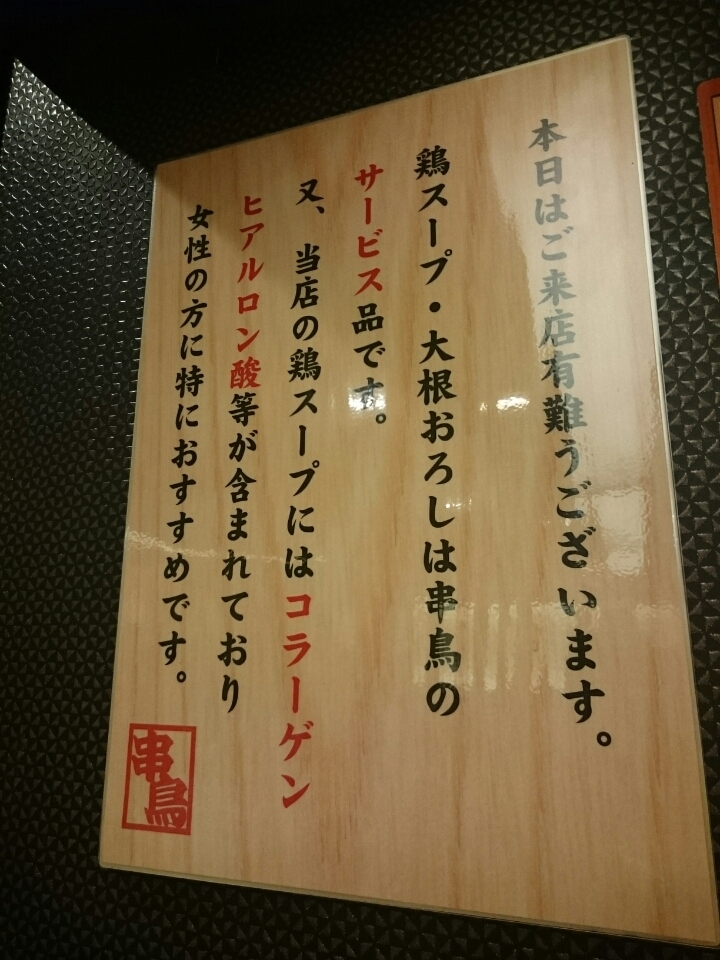 本日はご来店有難うございます。
鶏スープ・大根おろしは串鳥の
サービス品です。
又、当店の鶏スープにはコラーゲン
ヒアルロン酸等が含まれており
女性の方に特におすすめです。
串鳥